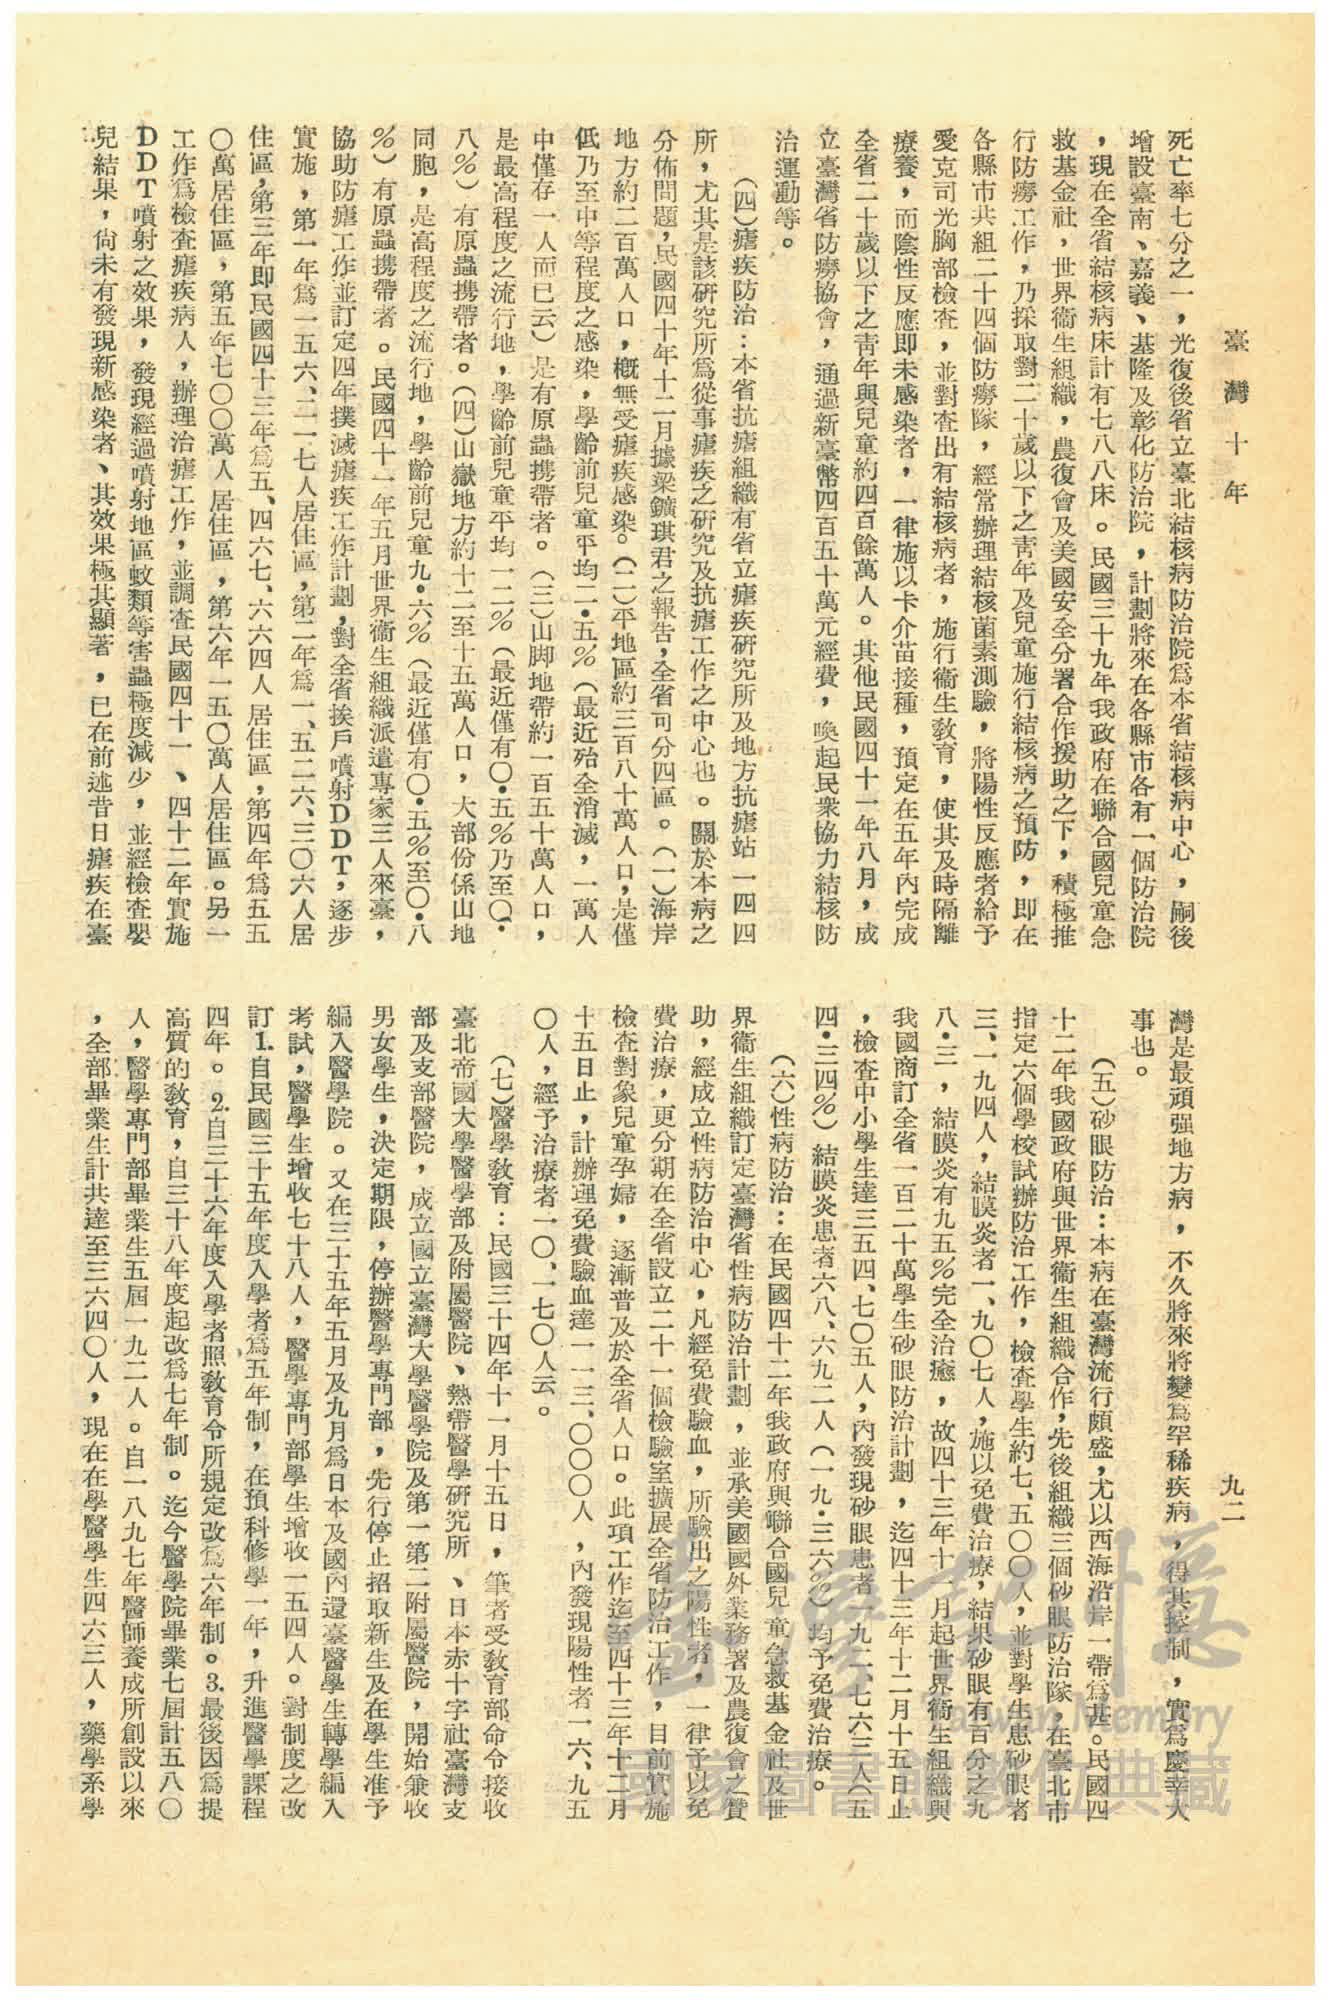 臺灣十年
九二
死亡率七分之一，光復後省立臺北結核病防治院爲本省結核病中心，嗣後
增設臺南、嘉義、基隆及彰化防治院，計劃將來在各縣市各有一個防治院
，現在全省結核病床計有七八八床。民國三十九年我政府在聯合國兒童急
救基金社，世界衞生組織，農復會及美國安全分署合作援助之下，積極推
行防癆工作，乃採取對二十歲以下之靑年及兒童施行結核病之預防，即在
各縣市共組二十四個防癆隊，經常辦理結核菌素測驗，將陽性反應者給予
愛克司光胸部檢查，並對査出有結核病者，施行衞生敎育，使其及時隔離
療養，而陰性反應即未感染者，一律施以卡介苗接種，預定在五年內完成
全省二十歲以下之靑年與兒童約四百餘萬人。其他民國四十一年八月，成
立臺灣省防癆協會，通過新臺幣四百五十萬元經費，喚起民衆協力結核防
治運動等。
（四）瘧疾防治：本省抗瘧組織有省立瘧疾研究所及地方抗瘧站一四四
所，尤其是該研究所爲從事瘧疾之硏究及抗瘧工作之中心也。關於本病之
分佈問題，民國四十年十二月據梁鑛琪君之報告，全省可分四區。（一）海岸
地方約二百萬人口，槪無受瘧疾感染。（二）平地區約三百八十萬人口，是僅
低乃至中等程度之感染，學齡前兒童平均二・五％（最近殆全消滅，一萬人
中僅存一人而已云）是有原蟲携帶者。（三）山脚地帶約一百五十萬人口，
是最高程度之流行地，學齡前兒童平均一二％（最近僅有〇・五％乃至〇・
八％）有原蟲携帶者。（四）山嶽地方約十二至十五萬人口，大部份係山地
同胞，是高程度之流行地，學齡前兒童九・六％（最近僅有〇・五％至〇・八
％）有原蟲携帶者。民國四十一年五月世界衞生組織派遣專家三人來臺，
協助防瘧工作並訂定四年撲滅瘧疾工作計劃，對全省挨戶噴射ＤＤＴ，逐步
實施，第一年爲一五六、二一七人居住區，第二年爲一、五二六、三〇六人居
住區，第三年即民國四十三年爲五、四六七、六六四人居住區，第四年爲五五
〇萬居住區，第五年七〇〇萬人居住區，第六年一五〇萬人居住區。另一
工作爲檢査瘧疾病人，辦理治瘧工作，並調查民國四十一、四十二年實施
ＤＤＴ噴射之效果，發現經過噴射地區蚊類等害蟲極度減少，並經檢査嬰
兒結果，尙未有發現新感染者、其效果極其顯著，已在前述昔日瘧疾在臺
灣是最頑强地方病，不久將來將變爲罕稀疾病，得其控制，實爲慶幸大
事也。
（五）砂眼防治：本病在臺灣流行頗盛，尤以西海沿岸一帶爲甚。民國四
十二年我國政府與世界衞生組織合作，先後組織三個砂眼防治隊，在臺北市
指定六個學校試辦防治工作，檢查學生約七、五〇〇人，並對學生患砂眼者
三、一九四人，結膜炎者一、九〇七人，施以免費治療，結果砂眼有百分之九
八・三，結膜炎有九五％完全治癒，故四十三年十一月起世界衞生組織與
我國商訂全省一百二十萬學生砂眼防治計劃，迄四十三年十二月十五日止
，檢查中小學生達三五四、七〇五人，內發現砂眼患者一九二、七六三人（五
四・三四％）結膜炎患者六八、六九二人（一九・三六％）均予免費治療。
（六）性病防治：在民國四十二年我政府與聯合國兒童急救基金社及世
界衞生組織訂定臺灣省性病防治計劃，並承美國國外業務署及農復會之贊
助，經成立性病防治中心，凡經免費驗血，所驗出之陽性者，一律予以免
費治療，更分期在全省設立二十一個檢驗室擴展全省防治工作，目前實施
檢査對象兒童孕婦，逐漸普及於全省人口。此項工作迄至四十三年十二月
十五日止，計辦理免費驗血達一一三、〇〇〇人，內發現陽性者一六、九五
〇人，經予治療者一〇、一七〇人云。
（七）醫學敎育：民國三十四年十一月十五日，筆者受敎育部命令接收
臺北帝國大學醫學部及附屬醫院、熱帶醫學研究所、日本赤十字社臺灣支
部及支部醫院，成立國立臺灣大學醫學院及第一第二附屬醫院，開始兼收
男女學生，決定期限，停辦醫學專門部，先行停止招取新生及在學生准予
編入醫學院。又在三十五年五月及九月爲日本及國內還臺醫學生轉學編入
考試，醫學生增收七十八人，醫學專門部學生增收一五四人。對制度之改
訂1.自民國三十五年度入學者爲五年制，在預科修學一年，升進醫學課程
四年。2.自三十六年度入學者照敎育令所規定改爲六年制。3.最後因爲提
高質的敎育，自三十八年度起改爲七年制。迄今醫學院畢業七屆計五八〇
人，醫學專門部畢業生五屆一九二人。自一八九七年醫師養成所創設以來
，全部畢業生計共達至三六四〇人，現在在學醫學生四六三人，藥學系學
臺灣記憶
Taiwan Memory
國家圖書館數位典藏